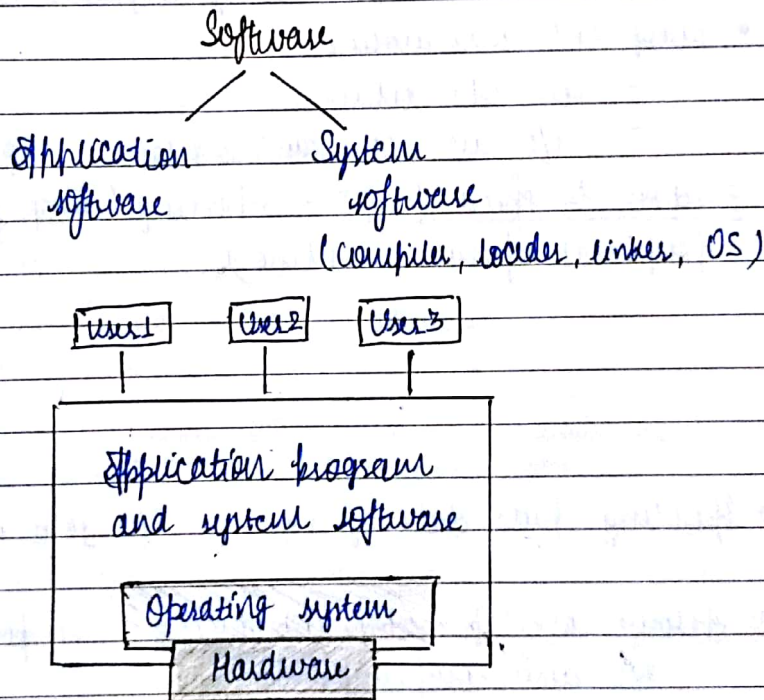 Software
Application System
software software
(compiler, loader, linker, OS)
User1 User2 User3
Application program
and system software
Operating system
Hardware